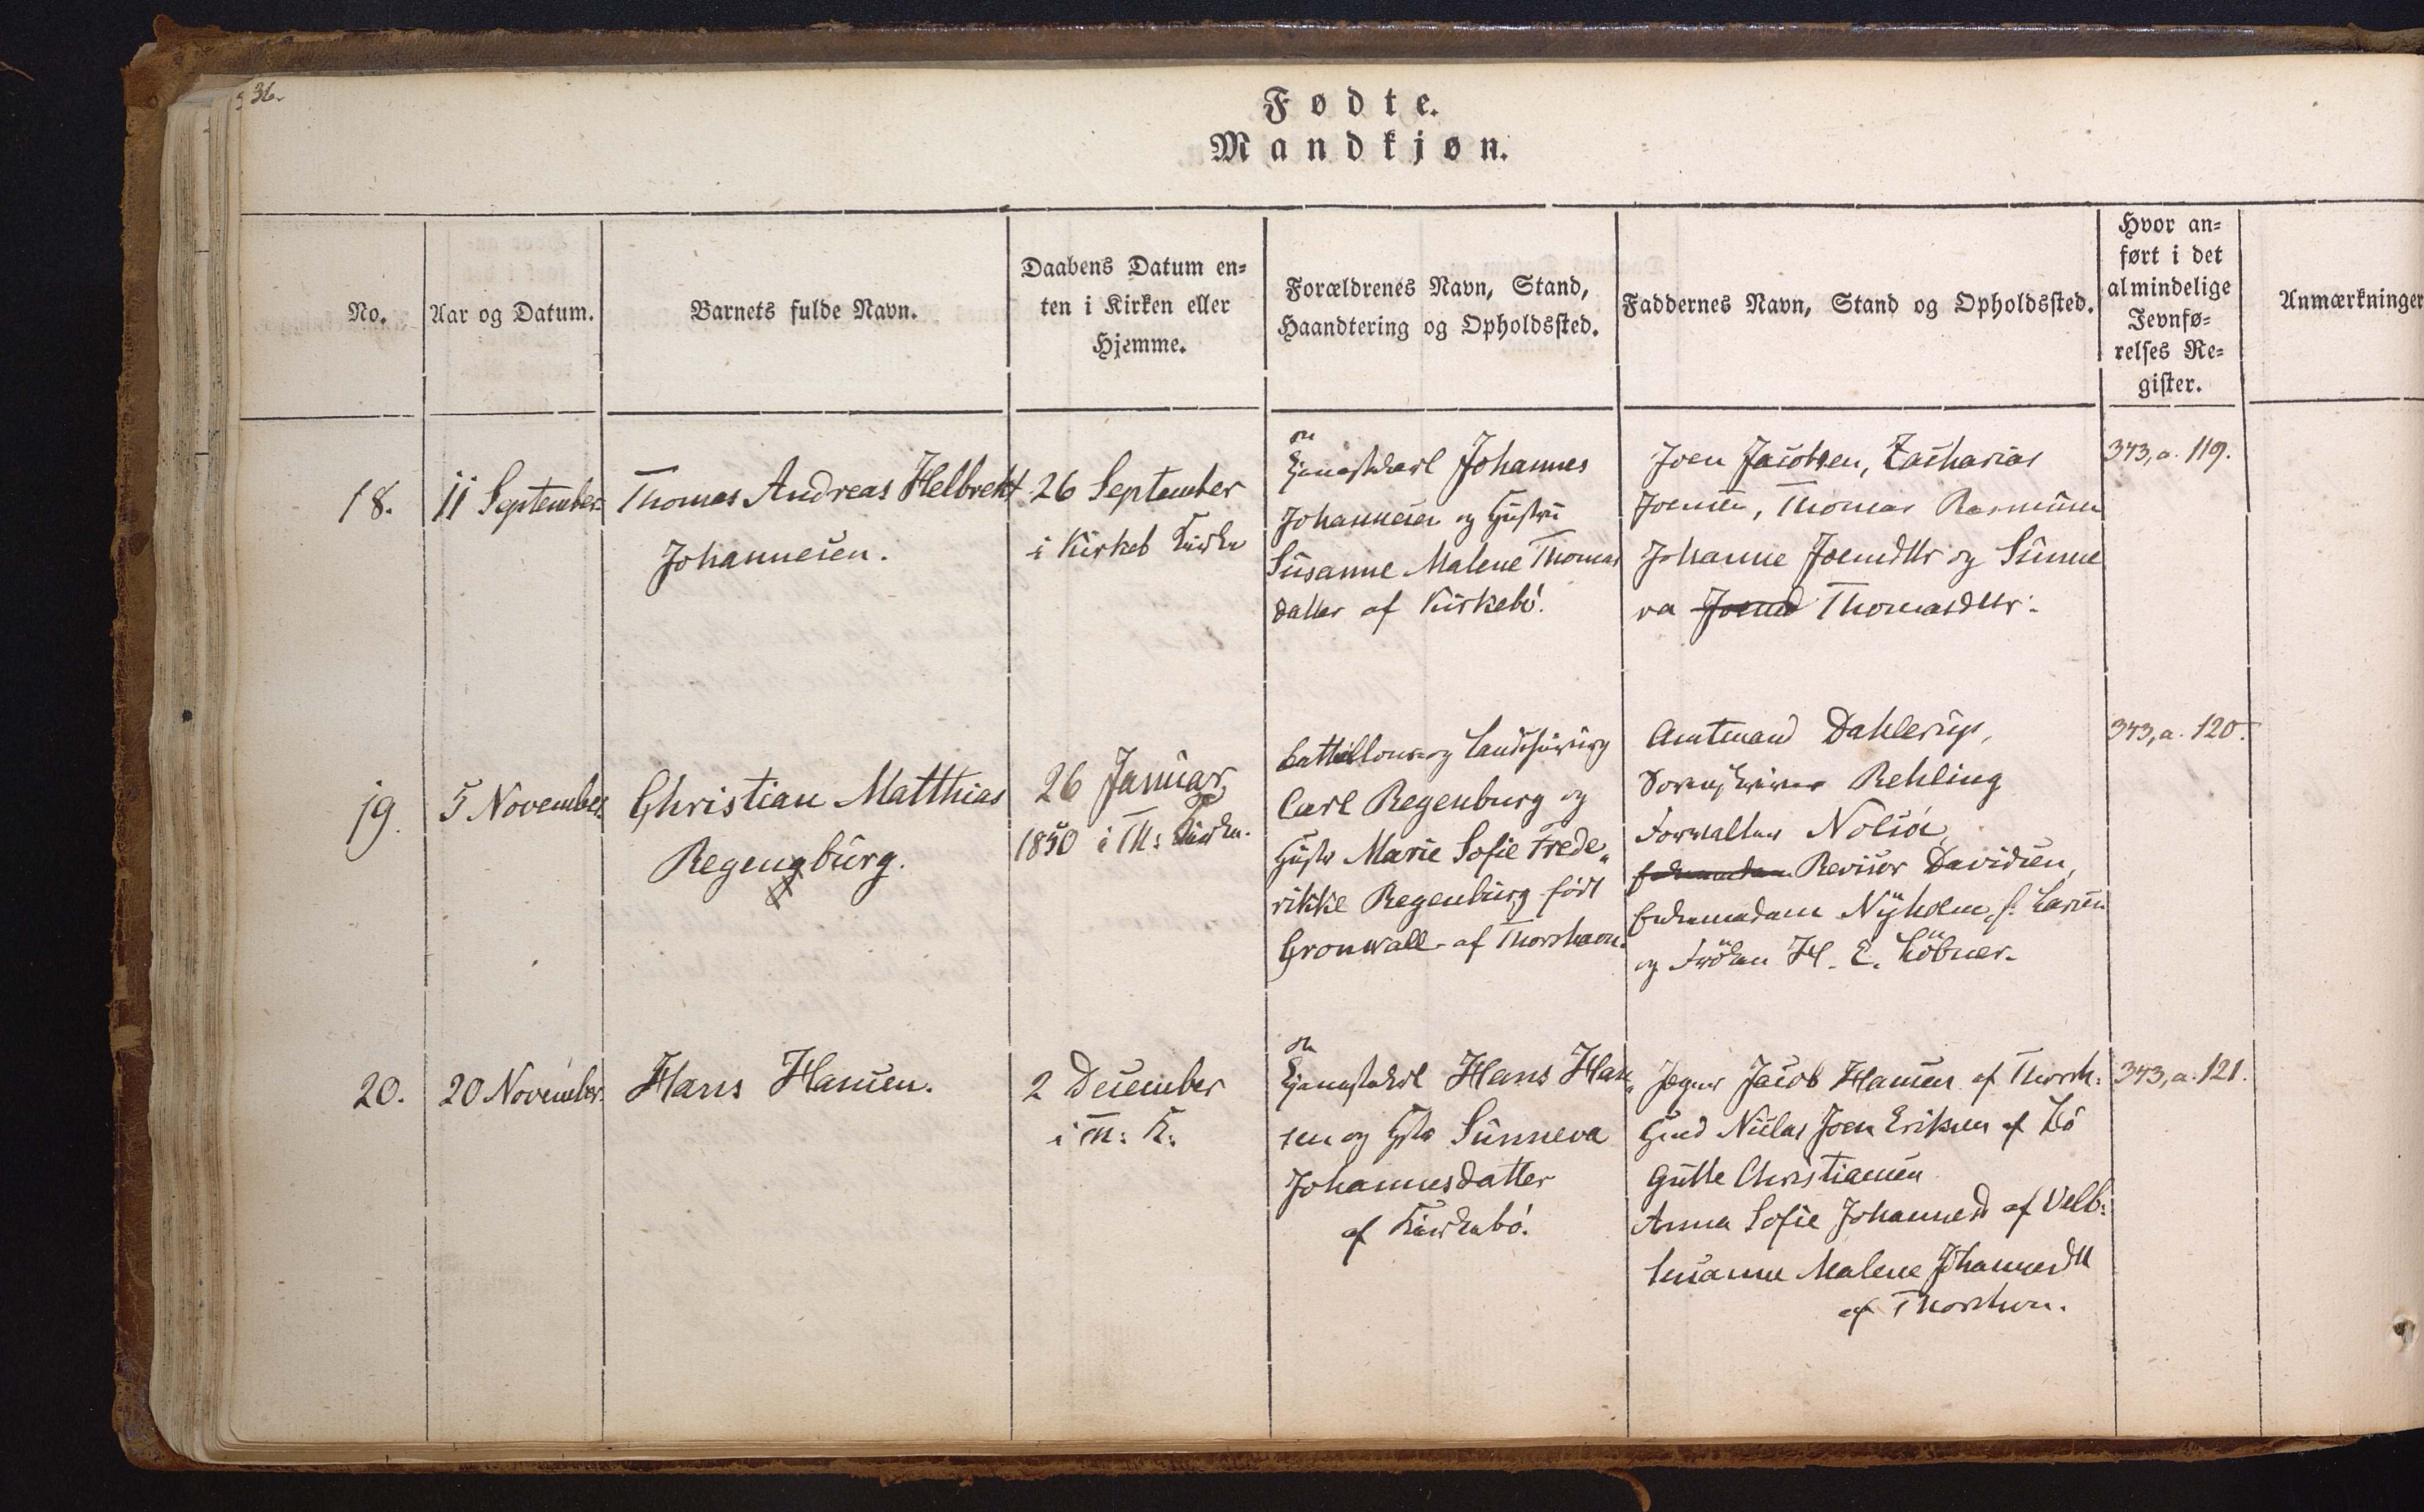 36.
Fødte.
Mandkjøn.
No.
Aar og Datum.
Barnets fulde Navn.
Daabens Datum en-
ten i Kirken eller
Hjemme.
Forældrenes Navn, Stand,
Haandtering og Opholdssted.
Faddernes Navn, Stand og Opholdssted.
Hvor an-
ført i det
almindelige
Jevnfø-
relses Re-
gister.
Anmærkninger
18.
11 September.
Thomas Andreas Helbrekt
Johannesen.
26 September
i Kirkeb Kirke
Tjenestekarl Johannes
Johannesen og Hustru
Susanne Malene Thomas
datter af Kirkebö.
Joen Jacobsen, Zacharias
Joensen, Thomas Rasmusen
Johanne Joensdttr og Sunne
va Joensd Thomasdttr.
343, a. 119.
19.
5 November.
Christian Matthias
Regengburg.
26 Januar
1850 i Th: Kirke.
Battillons og Landchirurg
Carl Regenburg og
Hustr Marie Sofie Frede„
rikke Regenburg født
Gronwall af Thorshavn.
Amtmand Dahlerup,
Sorenskriver Rehling
Forvalter Nolsöe,
Revisor Davidsen,
Enkemadam Nyholm, f. Larsen
og Fröken H. E. Löbner.
343, a. 120.
20.
20 November.
Hans Hansen.
2 December
i Th: K:
Tjenestekarl Hans Han„
sen og Hstr Sunneva
Johannesdatter
af Kirkebö.
Jæger Jacob Hansen af Thorsh:
Niclas Joen Eriksen af
Gutte Christiansen
Anna Sofie Johannesd af Velb:
Susanne Malene Johannesdtt
af Thorshvn.
343, a. 121.